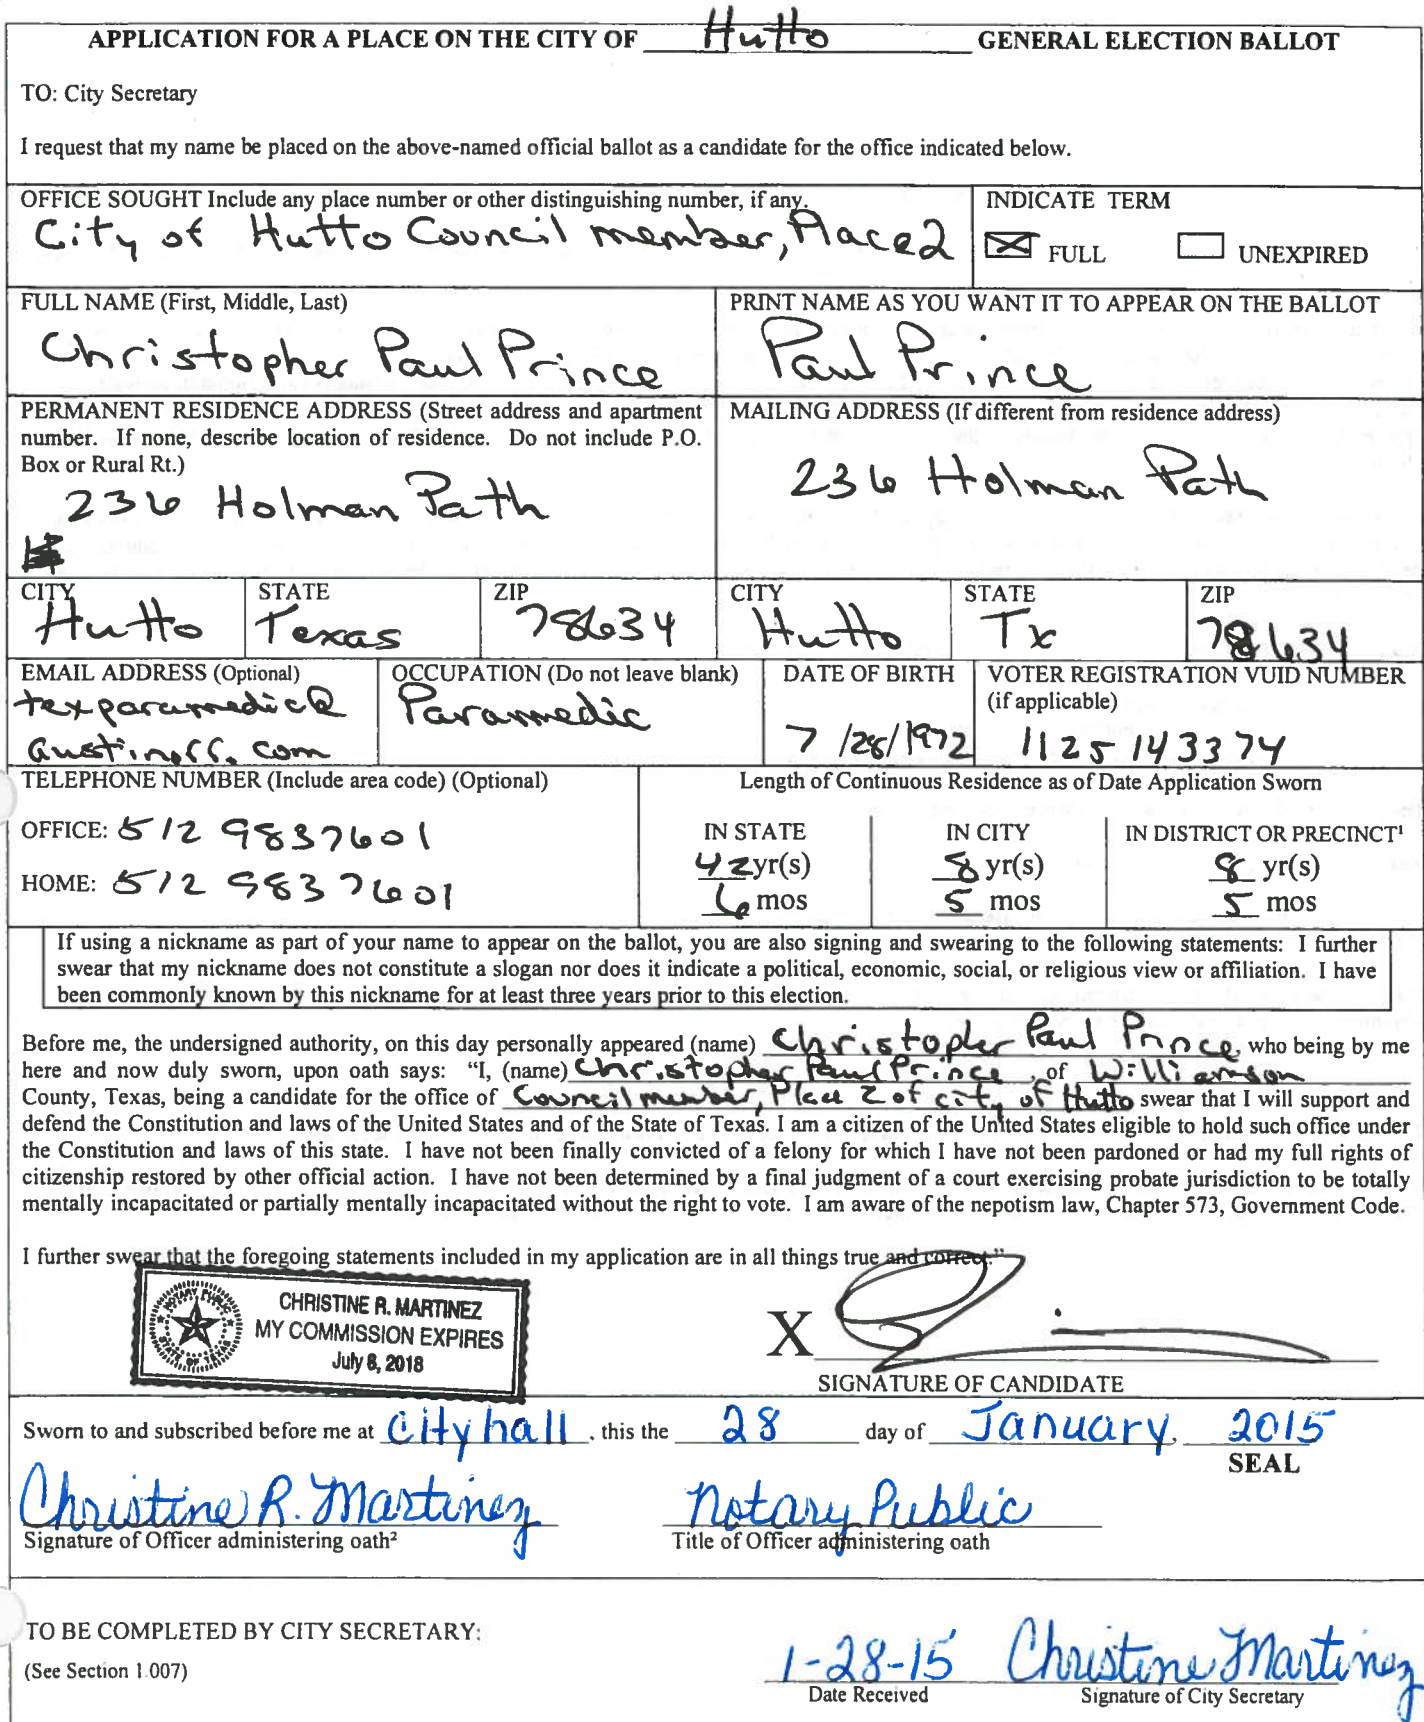 APPLICATION FOR A PLACE ON THE CITY OF Hutto GENERAL ELECTION BALLOT
TO: City Secretary
I request that my name be placed on the above-named official ballot as a candidate for the office indicated below.
OFFICE SOUGHT Include any place number or other distinguishing number, if any.
City of Hutto Council member, Place 2
INDICATE TERM
FULL UNEXPIRED
FULL NAME (First, Middle, Last)
Christopher Paul Prince
PRINT NAME AS YOU WANT IT TO APPEAR ON THE BALLOT
Paul Prince
PERMANENT RESIDENCE ADDRESS (Street address and apartment
number. If none, describe location of residence. Do not include P.O.
Box or Rural Rt.)
236 Holman Path
MAILING ADDRESS (If different from residence address)
236 Holman Path
CITY
Hutto
STATE
Texas
ZIP
78634
CITY
Hutto
STATE
Tx
ZIP
78634
EMAIL ADDRESS (Optional)
texparamedic@
austin.rr.com
OCCUPATION (Do not leave blank)
Paramedic
DATE OF BIRTH
7/28/1972
VOTER REGISTRATION VUID NUMBER
(if applicable)
1125143374
TELEPHONE NUMBER (Include area code) (Optional)
OFFICE: 512 9837601
HOME: 512 983 7601
Length of Continuous Residence as of Date Application Sworn
IN STATE
42 yr(s)
6 mos
IN CITY
8 yr(s)
5 mos
IN DISTRICT OR PRECINCT¹
8 yr(s)
5 mos
If using a nickname as part of your name to appear on the ballot, you are also signing and swearing to the following statements: I further
swear that my nickname does not constitute a slogan nor does it indicate a political, economic, social, or religious view or affiliation. I have
been commonly known by this nickname for at least three years prior to this election.
Before me, the undersigned authority, on this day personally appeared (name) Christopher Paul Prince, who being by me
here and now duly sworn, upon oath says: "I, (name) Christopher Paul Prince, of Williamson
County, Texas, being a candidate for the office of Council member, Place 2 of city of Hutto swear that I will support and
defend the Constitution and laws of the United States and of the State of Texas. I am a citizen of the United States eligible to hold such office under
the Constitution and laws of this state. I have not been finally convicted of a felony for which I have not been pardoned or had my full rights of
citizenship restored by other official action. I have not been determined by a final judgment of a court exercising probate jurisdiction to be totally
mentally incapacitated or partially mentally incapacitated without the right to vote. I am aware of the nepotism law, Chapter 573, Government Code.
I further swear that the foregoing statements included in my application are in all things true and correct."
NOTARY PUBLIC
STATE OF TEXAS
CHRISTINE R. MARTINEZ
MY COMMISSION EXPIRES
July 8, 2018
X
SIGNATURE OF CANDIDATE
Sworn to and subscribed before me at City hall, this the 28 day of January, 2015
SEAL
Christine R. Martinez
Signature of Officer administering oath²
Notary Public
Title of Officer administering oath
TO BE COMPLETED BY CITY SECRETARY:
(See Section 1.007)
1-28-15
Date Received
Christine Martinez
Signature of City Secretary